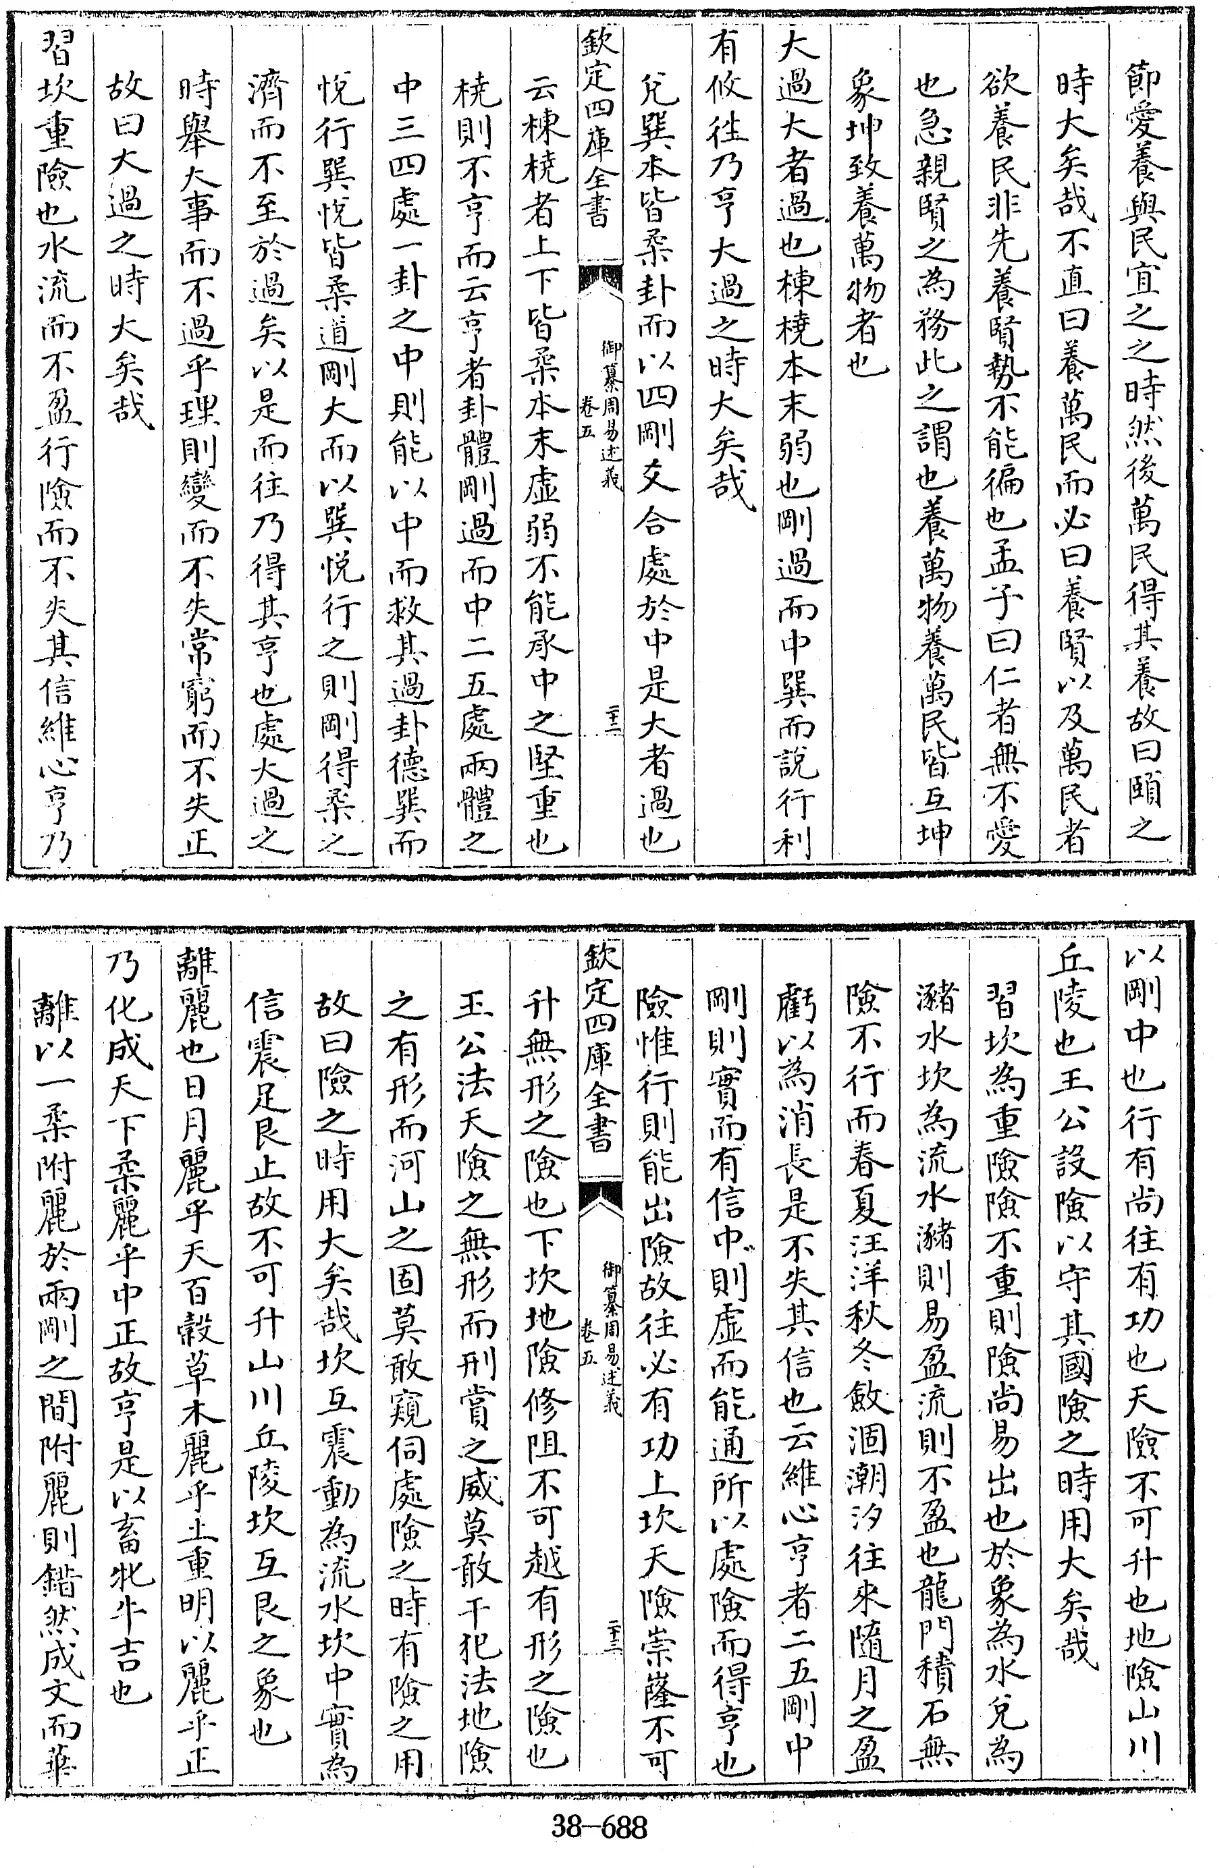 節愛養與民宜之之時然後萬民得其養故曰頤之
時大矣哉不直曰養萬民而必曰養賢以及萬民者
欲養民非先養賢勢不能徧也孟子曰仁者無不愛
也急親賢之為務此之謂也養萬物養萬民皆互坤
象坤致養萬物者也
大過大者過也棟橈本末弱也剛過而中巽而說行利
有攸往乃亨大過之時大矣哉
兌巽本皆柔卦而以四剛交合處於中是大者過也
欽定四庫全書
御纂周易述義
卷五
二十二
云棟橈者上下皆柔本末虛弱不能承中之堅重也
橈則不亨而云亨者卦體剛過而中二五處兩體之
中三四處一卦之中則能以中而救其過卦德巽而
悅行巽悅皆柔道剛大而以巽悅行之則剛得柔之
濟而不至於過矣以是而往乃得其亨也處大過之
時舉大事而不過乎理則變而不失常窮而不失正
故曰大過之時大矣哉
習坎重險也水流而不盈行險而不失其信維心亨乃
以剛中也行有尚往有功也天險不可升也地險山川
丘陵也王公設險以守其國險之時用大矣哉
習坎為重險險不重則險尚易出也於象為水兌為
瀦水坎為流水瀦則易盈流則不盈也龍門積石無
險不行而春夏汪洋秋冬斂涸潮汐往來隨月之盈
虧以為消長是不失其信也云維心亨者二五剛中
剛則實而有信中則虛而能通所以處險而得亨也
險惟行則能出險故往必有功上坎天險崇隆不可
欽定四庫全書
御纂周易述義
卷五
二十三
升無形之險也下坎地險修阻不可越有形之險也
王公法天險之無形而刑賞之威莫敢干犯法地險
之有形而河山之固莫敢窺伺處險之時有險之用
故曰險之時用大矣哉坎互震動為流水坎中實為
信震足艮止故不可升山川丘陵坎互艮之象也
離麗也日月麗乎天百穀草木麗乎土重明以麗乎正
乃化成天下柔麗乎中正故亨是以畜牝牛吉也
離以一柔附麗於兩剛之間附麗則錯然成文而華
38-688